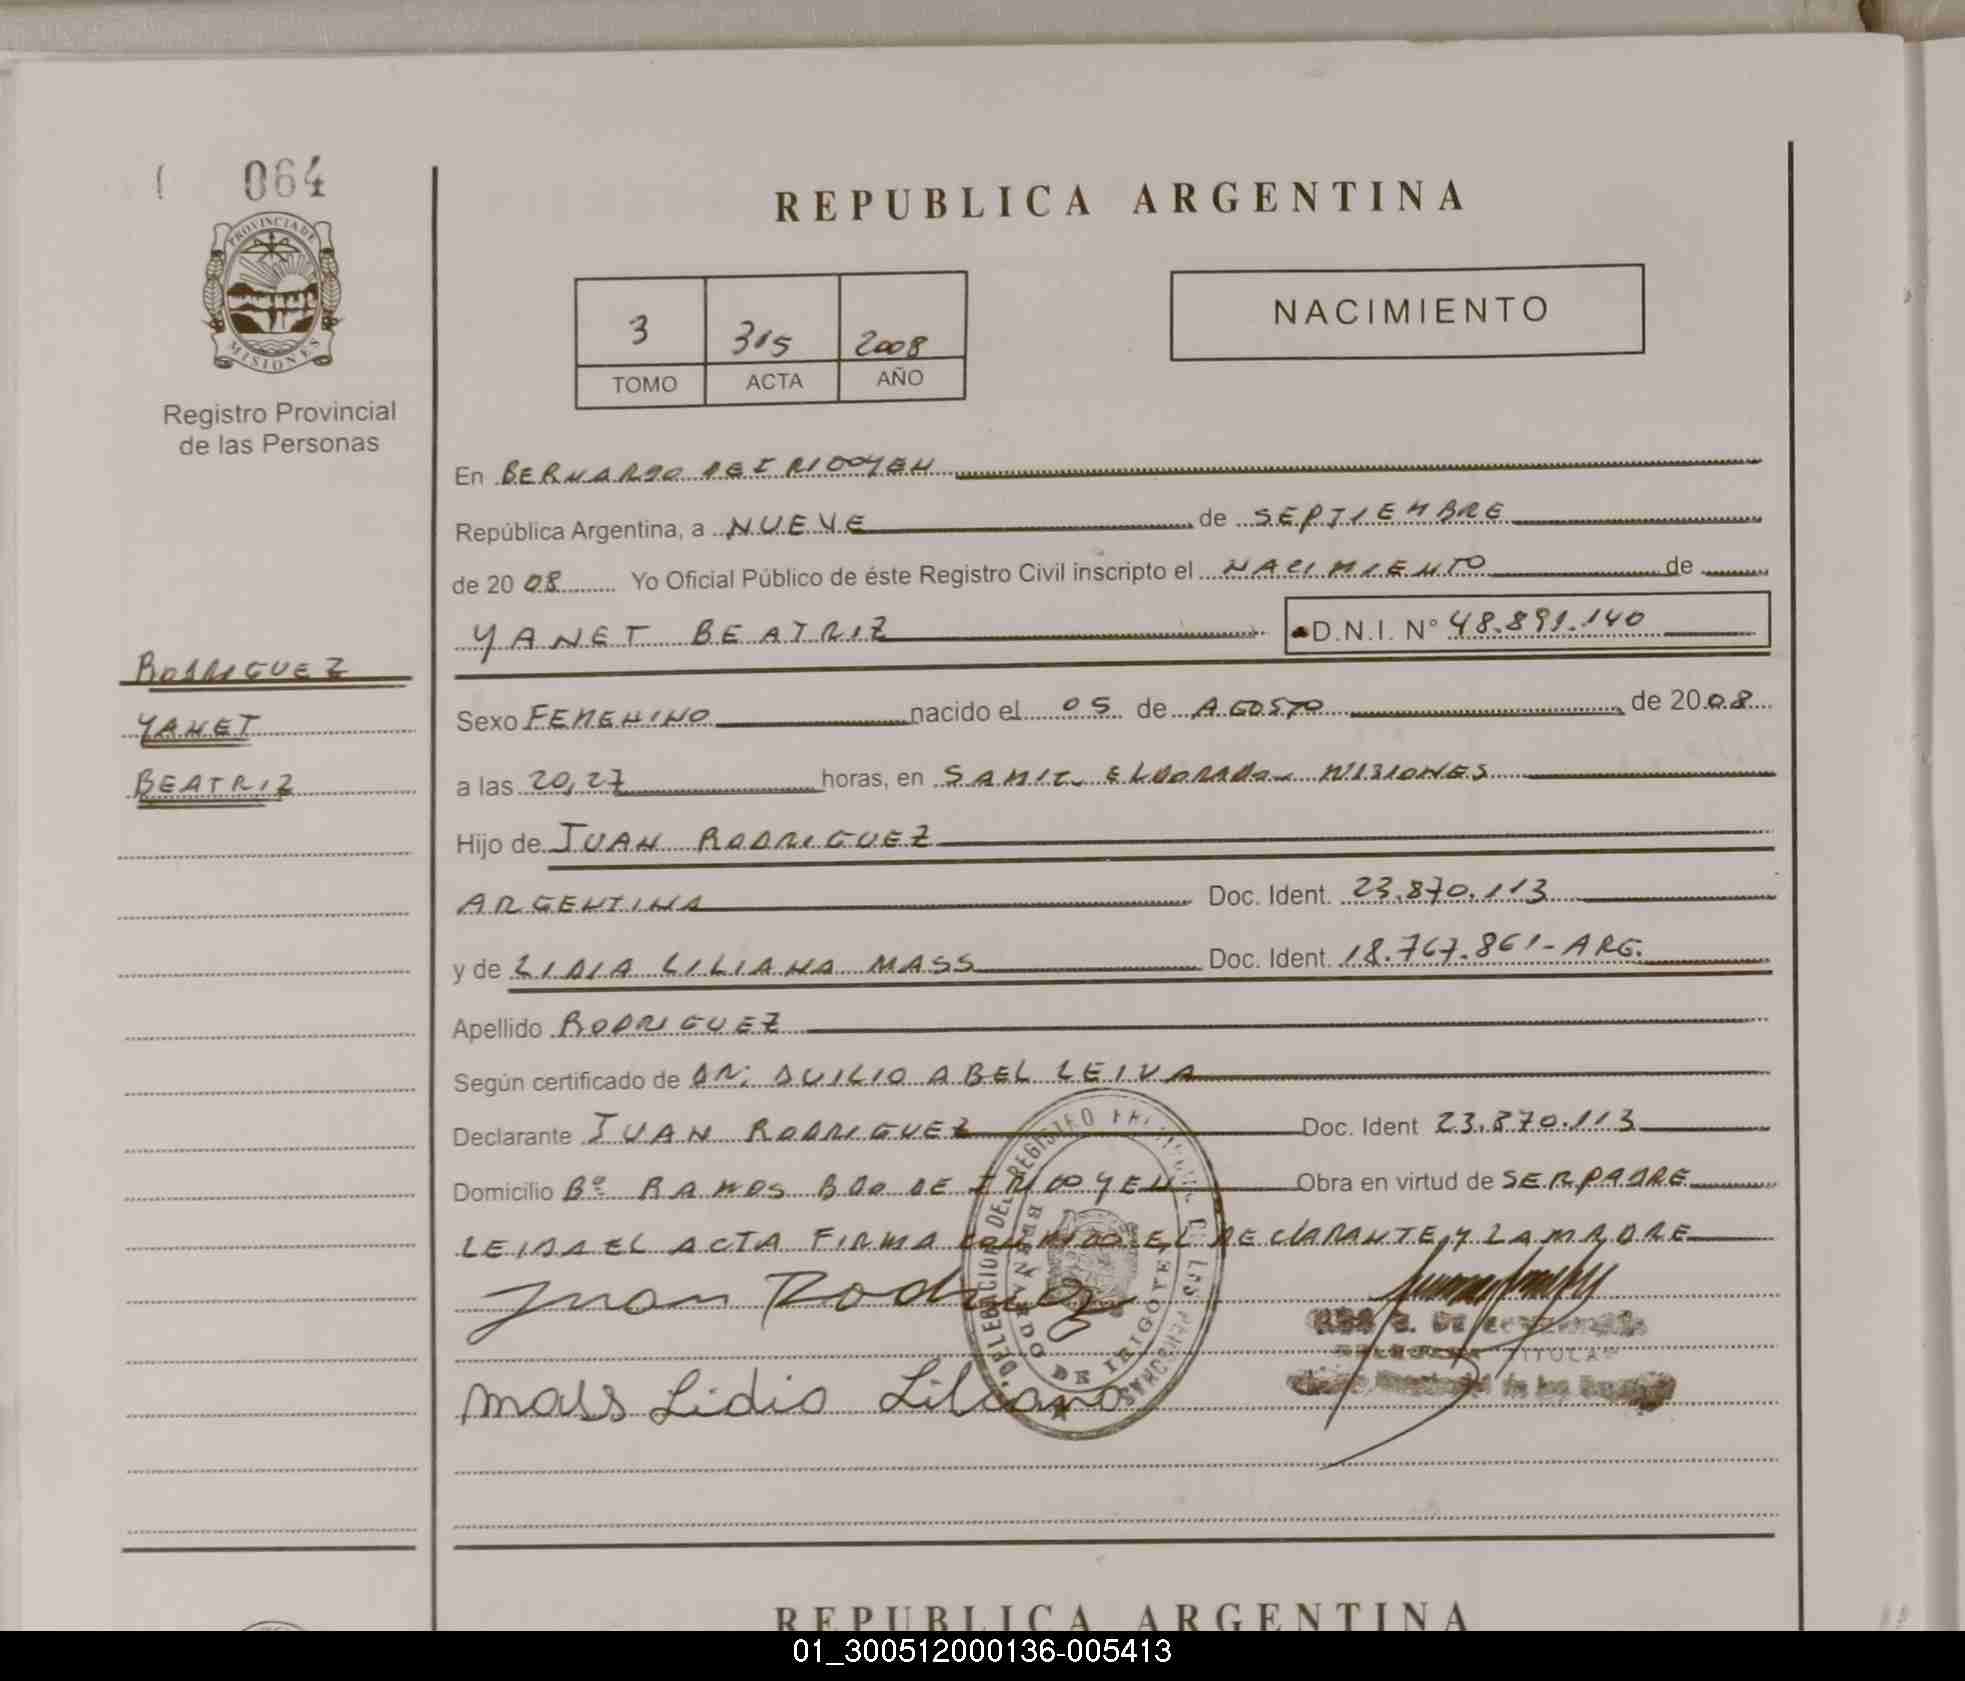 064
PROVINCIA DE
MISIONES
Registro Provincial
de las Personas
REPUBLICA ARGENTINA
3 315 2008
TOMO ACTA AÑO
NACIMIENTO
En BERNARDO DE IRIGOYEN
República Argentina, a NUEVE de SEPTIEMBRE
de 2008 Yo Oficial Público de éste Registro Civil inscripto el NACIMIENTO de
YANET BEATRIZ D.N.I. N° 48.891.140
RODRIGUEZ
YANET
BEATRIZ
Sexo FEMENINO nacido el 05 de AGOSTO de 2008
a las 20,27 horas, en SAMIC ELDORADO MISIONES
Hijo de JUAN RODRIGUEZ
ARGENTINA Doc. Ident. 23.870.113
y de LIDIA LILIANA MASS Doc. Ident. 18.767.861- ARG.
Apellido RODRIGUEZ
Según certificado de DR: DUILIO ABEL LEIVA
Declarante JUAN RODRIGUEZ Doc. Ident 23.870.113
Domicilio Bº RAMOS BDO DE IRIGOYEN Obra en virtud de SER PADRE
LEIDA EL ACTA FIRMA CONMIGO EL DECLARANTE Y LA MADRE
Juan Rodriguez
mass Lidia Liliana
DELEGACION DEL REGISTRO PROVINCIAL DE LAS PERSONAS
BERNARDO DE IRIGOYEN
TITULAR
REPUBLICA ARGENTINA
01_300512000136-005413